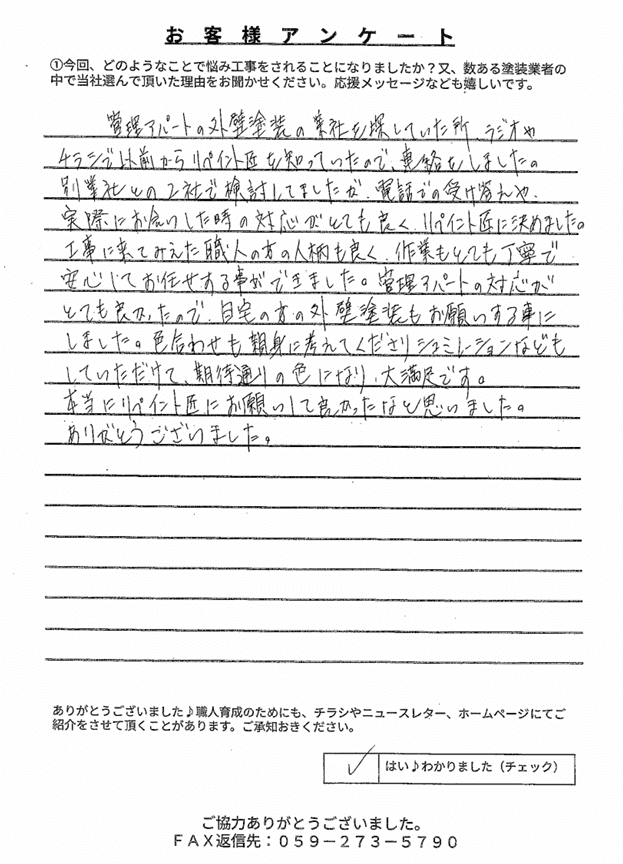 お客様アンケート
①今回、どのようなことで悩み工事をされることになりましたか？又、数ある塗装業者の
中で当社選んで頂いた理由をお聞かせください。応援メッセージなども嬉しいです。
管理アパートの外壁塗装の業社を探していた所、ラジオや
チラシで以前からリペイント匠を知っていたので、連絡をしました。
別業社との2社で検討してましたが、電話での受け答えや、
実際にお会いした時の対応がとても良く、リペイント匠に決めました。
工事に来てみえた職人の方の人柄も良く、作業もとても丁寧で
安心してお任せする事ができました。管理アパートの対応が
とても良かったので、自宅の方の外壁塗装もお願いする事に
しました。色合わせも親身に考えてくださりシュミレーションなども
していただけて、期待通りの色になり、大満足です。
本当にリペイント匠にお願いして良かったなと思いました。
ありがとうございました。
ありがとうございました♪職人育成のためにも、チラシやニュースレター、ホームページにてご
紹介をさせて頂くことがあります。ご承知おきください。
✓ はい♪わかりました（チェック）
ご協力ありがとうございました。
ＦＡＸ返信先：０５９－２７３－５７９０